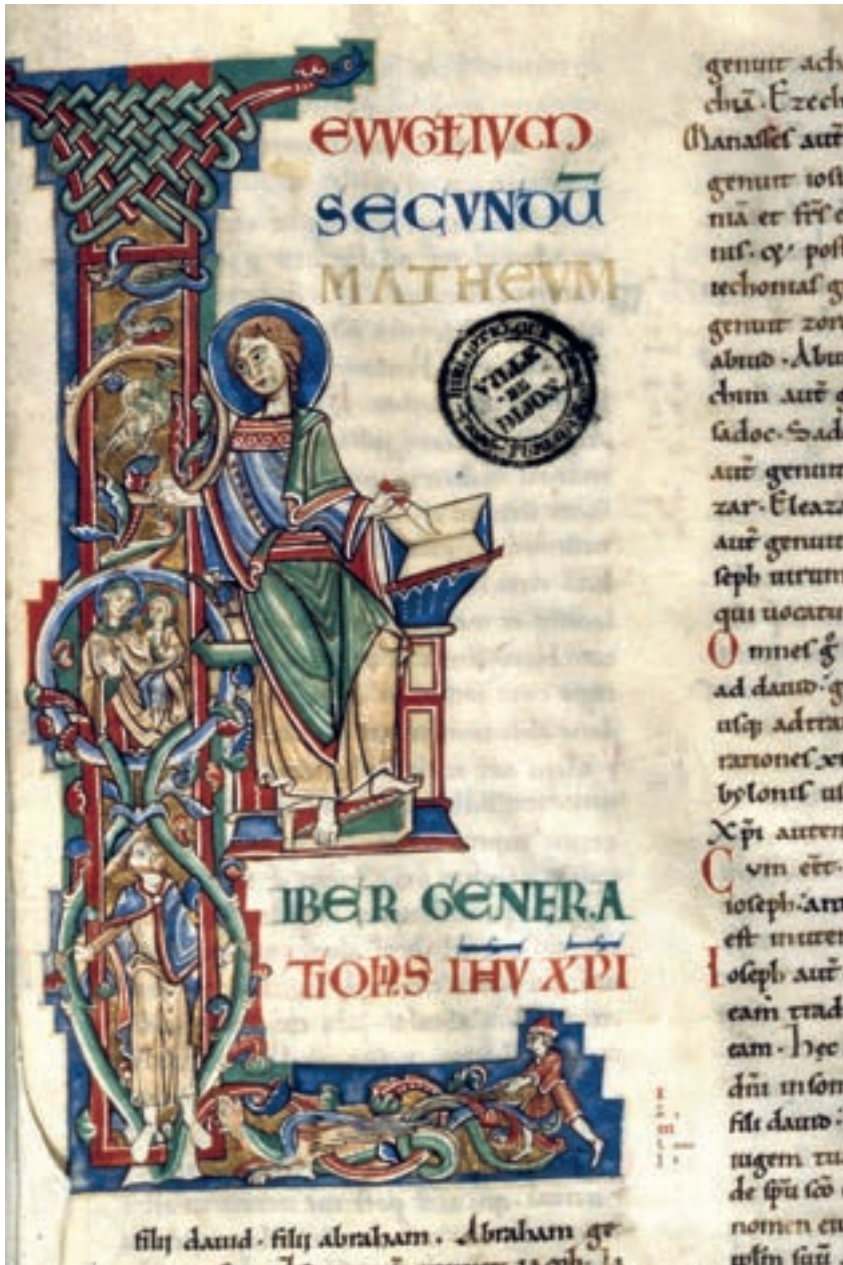 EVVGŁIVM
SECVNDŪ
MATHEVM
BIBLIOTHEQUE
VILLE
DE
DIJON
IBER GENERA
TIONIS IHV XPI
filij dauid · filij abraham . Abraham ge
genuit
chiā · Ezech
Manasses aut̄
genuit iosi
niā et fr̄s
nus · post
iechonias g
genuit zoro
abiud · Abiu
chim aut̄
sadoc · Sad
aut̄ genuit
zar · Eleaza
aut̄ genuit
seph uirum
qui uocatu
Omnes
ad dauid · g
usq; ad tra
rationes
bylonis
Xp̄i autem
Cvm eēt
ioseph · ant
est inuen
Ioseph aut̄
eam trad
eam · hęc
dn̄i in som
fili dauid
iugem tu
de sp̄u sc̄o
nomen eiu